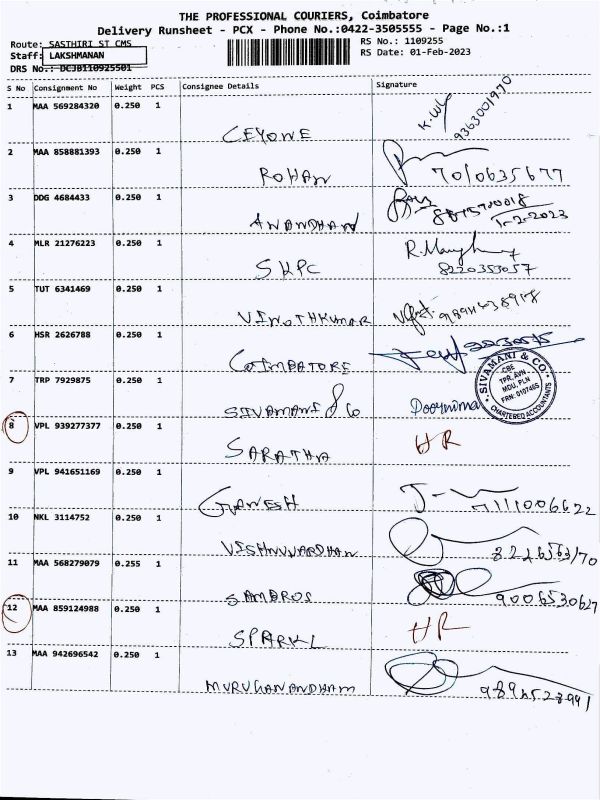 THE PROFESSIONAL COURIERS, Coimbatore
Delivery Runsheet - PCX - Phone No.:0422-3505555 - Page No.:1
Route: SASTHIRI ST CMS
RS No.: 1109255
Staff: LAKSHMANAN
RS Date: 01-Feb-2023
DRS No.: DCJB110925501
S No Consignment No Weight PCS Consignee Details Signature
1 MAA 569284320 0.250 1
CEYONE
2 MAA 858881393 0.250 1
ROHAN 7010635677
3 DDG 4684433 0.250 1
ANANDHAN 1-2-2023
4 MLR 21276223 0.250 1
SKPC 8220353057
5 TUT 6341469 0.250 1
VINOTHKUMAR
6 HSR 2626788 0.250 1
COIMBATORE
7 TRP 7929875 0.250 1
SIVAMANI & CO Poornima
SIVAMANI & CO.
CBE
TPR, AVN
MDU, PLN
FRN: 010746S
CHARTERED ACCOUNTANTS
8 VPL 939277377 0.250 1
SARATHA HR
9 VPL 941651169 0.250 1
GANESH 7111006622
10 NKL 3114752 0.250 1
VISHNUVARDHAN
11 MAA 568279079 0.255 1
SAMBROS 9006530627
12 MAA 859124988 0.250 1
SPARKL HR
13 MAA 942696542 0.250 1
MURUGANANDHAM